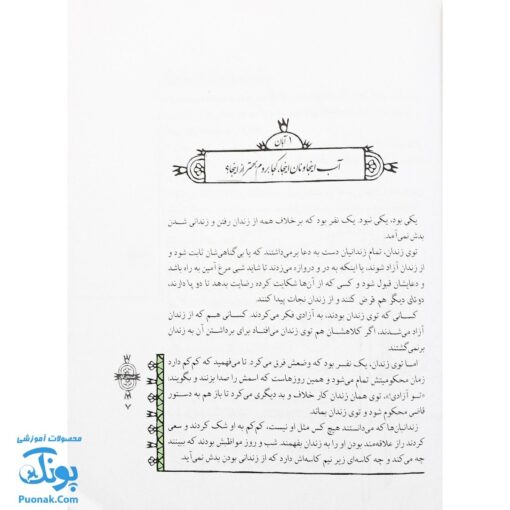 ۱ آبان
آب اینجا و نان اینجا، کجا بروم بهتر از اینجا؟
یکی بود، یکی نبود. یک نفر بود که برخلاف همه از زندان رفتن و زندانی شدن
بدش نمی‌آمد.
توی زندان، تمام زندانیان دست به دعا برمی‌داشتند که یا بی‌گناهی‌شان ثابت شود و
از زندان آزاد شوند، یا اینکه به در و دروازه می‌زدند تا شاید شبی مرغ آمین به راه باشد
و دعایشان قبول شود و کسی که از آن‌ها شکایت کرده رضایت بدهد تا دو پا دارند،
دو تای دیگر هم قرض کنند و از زندان نجات پیدا کنند.
کسانی که توی زندان بودند، به آزادی فکر می‌کردند. کسانی هم که از زندان
آزاد می‌شدند، اگر کلاهشان هم توی زندان می‌افتاد برای برداشتن آن به زندان
برنمی‌گشتند.
اما توی زندان، یک نفر بود که وضعش فرق می‌کرد. تا می‌فهمید که کم‌کم دارد
زمان محکومیتش تمام می‌شود و همین روزهاست که اسمش را صدا بزنند و بگویند:
«تو آزادی»، توی همان زندان کار خلاف و بد دیگری می‌کرد تا باز هم به دستور
قاضی محکوم شود و توی زندان بماند.
زندانبان‌ها که می‌دانستند هیچ کس مثل او نیست، کم‌کم به او شک کردند و سعی
کردند راز علاقه‌مند بودن او را به زندان بفهمند. شب و روز مواظبش بودند که ببینند
چه می‌کند و چه کاسه‌ای زیر نیم کاسه‌اش دارد که از زندانی بودن بدش نمی‌آید.
۷
محصولات آموزشی
پونک
Puonak.Com